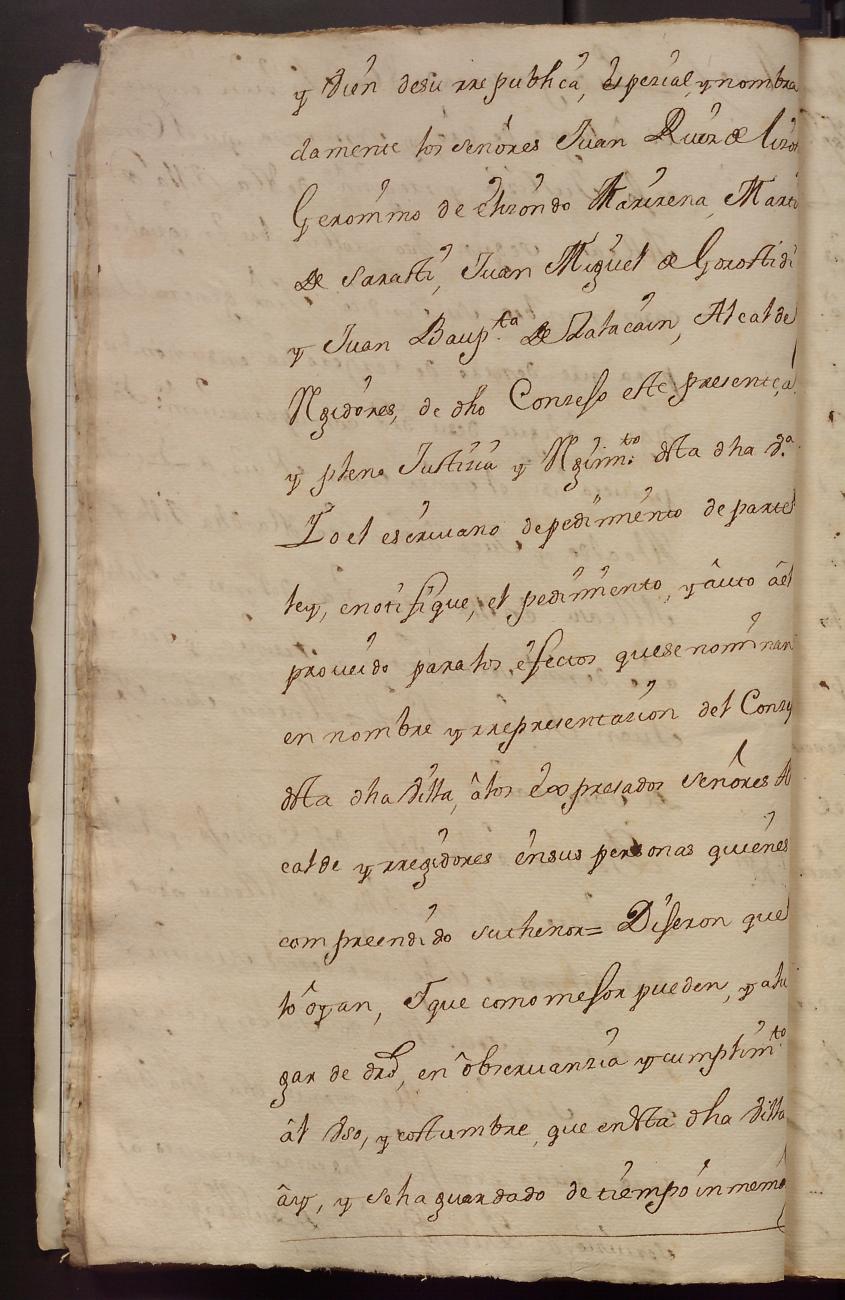 y vien desu rrepublica, espezial, y nombra
damente los señores Juan Ruiz de
Geronimo de elizondo Marirena, Martin
de Sarasti, Juan Miguel de Gorostidi
y Juan Baup.ta de Zatarain, Alcalde
Regidores, de dho Conzejo este presente, a
y plena Justizia y Regim.to desta dha v.a
Yo el escriuano de pedimento de parte
ley, e notifique, el pedimento, y auto a el
proueido para los efectos que se nominan
en nombre y rrepresentazion del Conzejo
desta dha Villa, a los expresados señores Al
calde y rregidores en sus personas quienes
compreendido su thenor= Dijeron que
lo oyan, Y que como mejor pueden, y a lu
gar de dro, en obseruanzia y cumplim.to
al Vso, y costumbre, que en esta dha Villa
ay, y se ha guardado de tiempo inmemo